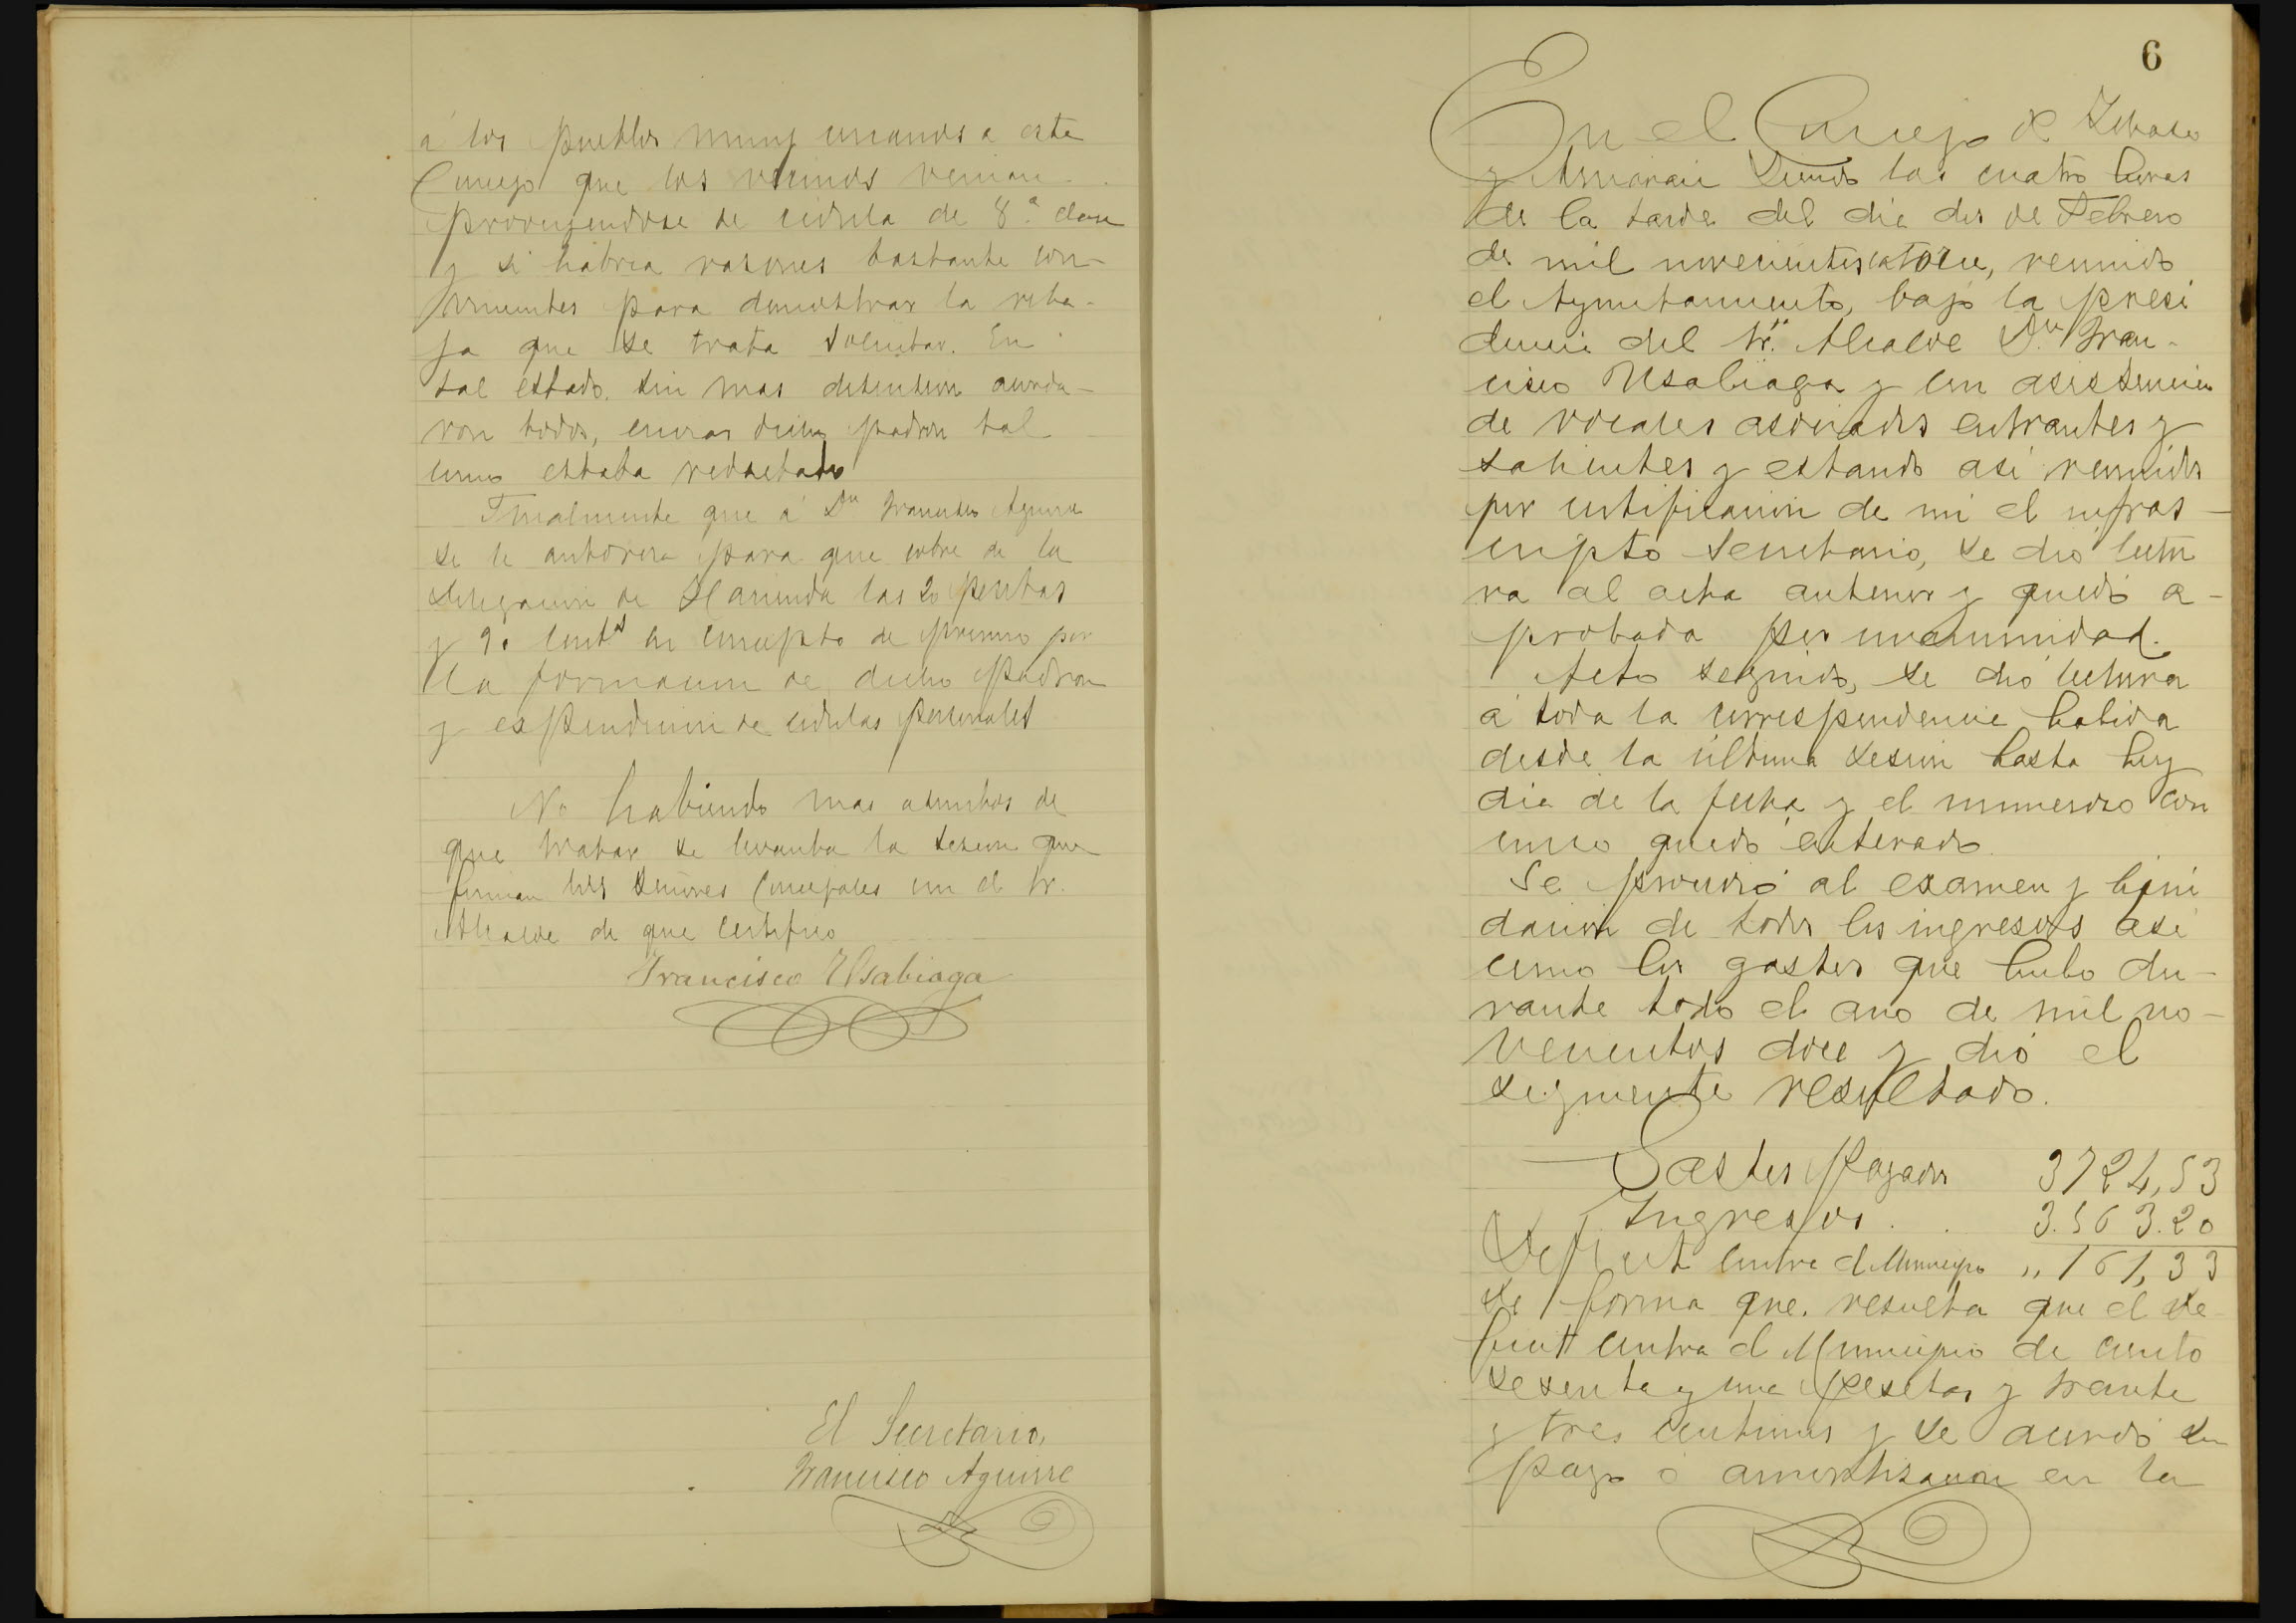 á los pueblos muy cercanos a este
Concejo que los vecinos venian
proveyendose de cedula de 8.ª clase
y si habria rasones bastante con-
venientes para demostrar la reba-
ja que se trata solicitar. En
tal estado sin mas discusion acorda-
ron todos, enviar dicho padron tal
como estaba redactado
Finalmente que á Dn Francisco Aguirre
se le autorisa para que cobre de la
delegacion de Hacienda las 20 pesetas
y 90 centˢ en concepto de premio por
la formacion de dicho padron
y espendicion de cedulas personales
No habiendo mas asuntos de
que tratar se levanta la sesion que
firman los señores Concejales con el Sr.
Alcalde de que certifico
Francisco Usabiaga
El Secretario,
Francisco Aguirre
6
En el Concejo de
y siendo las cuatro horas
de la tarde del dia dos de Febrero
de mil novecientos catorce, reunido
el Ayuntamiento, bajo la presi
dencia del Sr. Alcalde Dn Fran-
cisco Usabiaga y con asistencia
de vocales asociados entrantes y
salientes y estando asi reunidos
por certificacion de mi el infras-
cripto Secretario, se dió lectu
ra al acta anterior y quedó a-
probada por unanimidad.
Acto seguido, se dió lectura
á toda la correspondencia habida
desde la última sesion hasta hoy
dia de la fecha y el numeroso con
curso quedó enterado
Se procedió al examen y liqui
dacion de todos los ingresos asi
como los gastos que hubo du-
rante todo el año de mil no-
vecientos doce y dió el
siguiente resultado.
Gastos Pagados 3724,53
Ingresos . . 3.563.20
Deficit contra el Municipio ,, 161,33
de forma que resulta que el de
ficit contra el Municipio de ciento
sesenta y una pesetas y treinta
y tres centimos y se acordó su
pago ó amortisacion en la